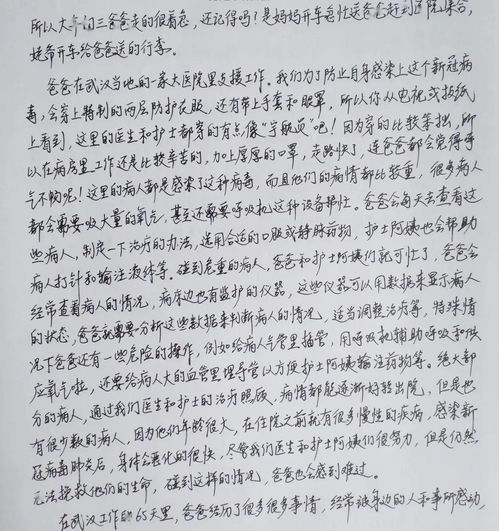 所以大年初三爸爸走的很着急，还记得吗！是妈妈开车急忙送爸爸赶到医院集合，
姥爷开车给爸爸送的行李。
爸爸在武汉当地的一家大医院里支援工作。我们为了防止自身感染上这个新冠病
毒，会穿上特制的两层防护衣服，还有带上手套和眼罩，所以你从电视或报纸
上看到，这里的医生和护士都穿的有点像“宇航员”吧！因为穿的比较笨拙，所
以在病房里工作还是比较辛苦的，加上厚厚的口罩，走路快了，连爸爸都会觉得呼
气不够呢！这里的病人都是感染了这种病毒，而且他们的病情都比较重，很多病人
都会需要吸大量的氧气，甚至还需要呼吸机这种设备帮忙。爸爸会每天去查看这
些病人，制定一下治疗的办法，选用合适的口服或静脉药物，护士阿姨也会帮助
病人打针和输注液体等。碰到危重的病人，爸爸和护士阿姨们就可忙了，爸爸会
经常查看病人的情况，病床边也有监护的仪器，这些仪器可以用数据来显示病人
的状态，爸爸就需要分析这些数据来判断病人的情况，适当调整治疗等，特殊情
况下爸爸还有一些危险的操作，例如给病人气管里插管，用呼吸机辅助呼吸和供
应氧气啦，还要给病人大的血管里埋导管以方便护士阿姨输注药物等。绝大部
分的病人，通过我们医生和护士的治疗照顾，病情都能逐渐好转出院，但是也
有很少数的病人，因为他们年龄很大，在住院之前就有很多慢性的疾病，感染新
冠病毒肺炎后，身体会恶化的很快，尽管我们医生和护士阿姨们很努力，但是仍然
无法挽救他们的生命，碰到这样的情况，爸爸也会感到难过。
在武汉工作的65天里，爸爸经历了很多很多事情，经常被身边的人和事所感动，